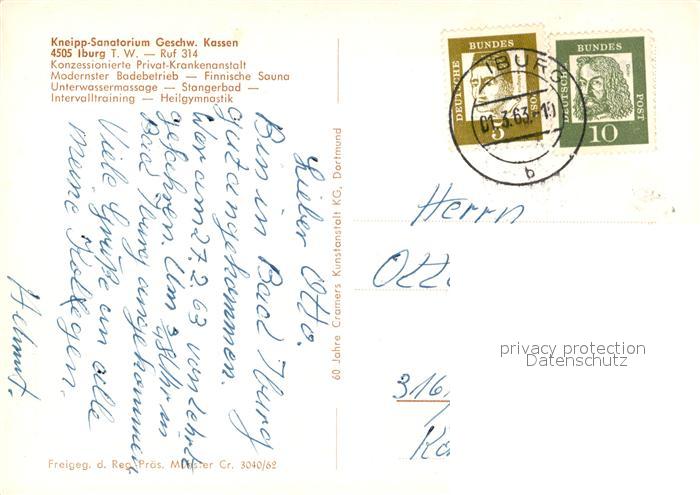 Kneipp-Sanatorium Geschw. Kassen
4505 Iburg T. W. — Ruf 314
Konzessionierte Privat-Krankenanstalt
Modernster Badebetrieb — Finnische Sauna
Unterwassermassage — Stangerbad —
Intervalltraining — Heilgymnastik
Lieber Otto.
Bin in Bad Iburg
gut angekommen.
War am 27.2.63 von
gefahren. Um 3/4 8 Uhr in
Bad Iburg angekommen
Viele Grüße an alle
meine Kollegen.
Helmut.
60 Jahre Cramers Kunstanstalt KG, Dortmund
Freigeg. d. Reg. Präs. Münster Cr. 3040/62
DEUTSCHE BUNDES POST
5
DEUTSCHE BUNDES POST
10
IBURG
01.3.63.-15
b
Herrn
Otto
316
privacy protection
Datenschutz